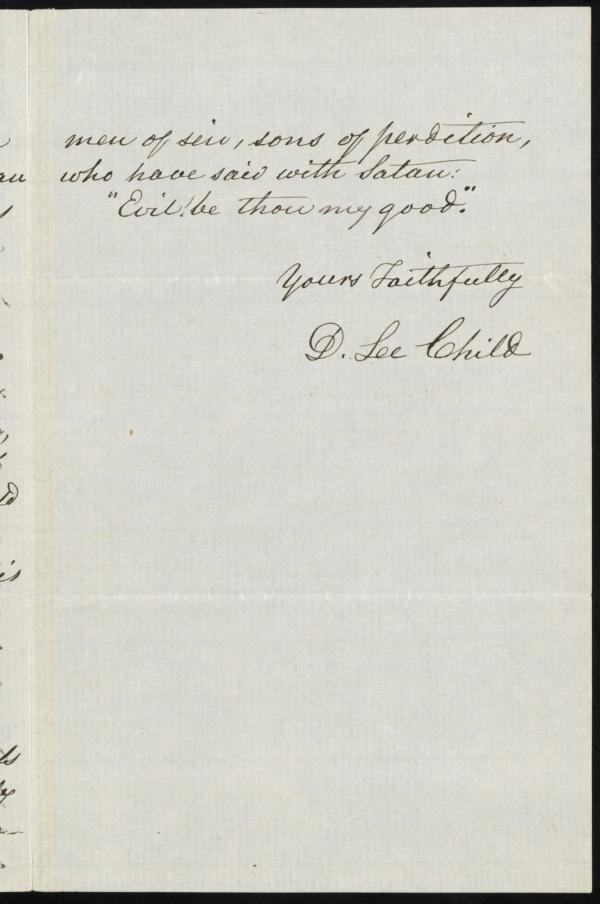 men of sin, sons of perdition,
who have said with Satan:
"Evil! be thou my good."
Yours Faithfully
D. Lee Child